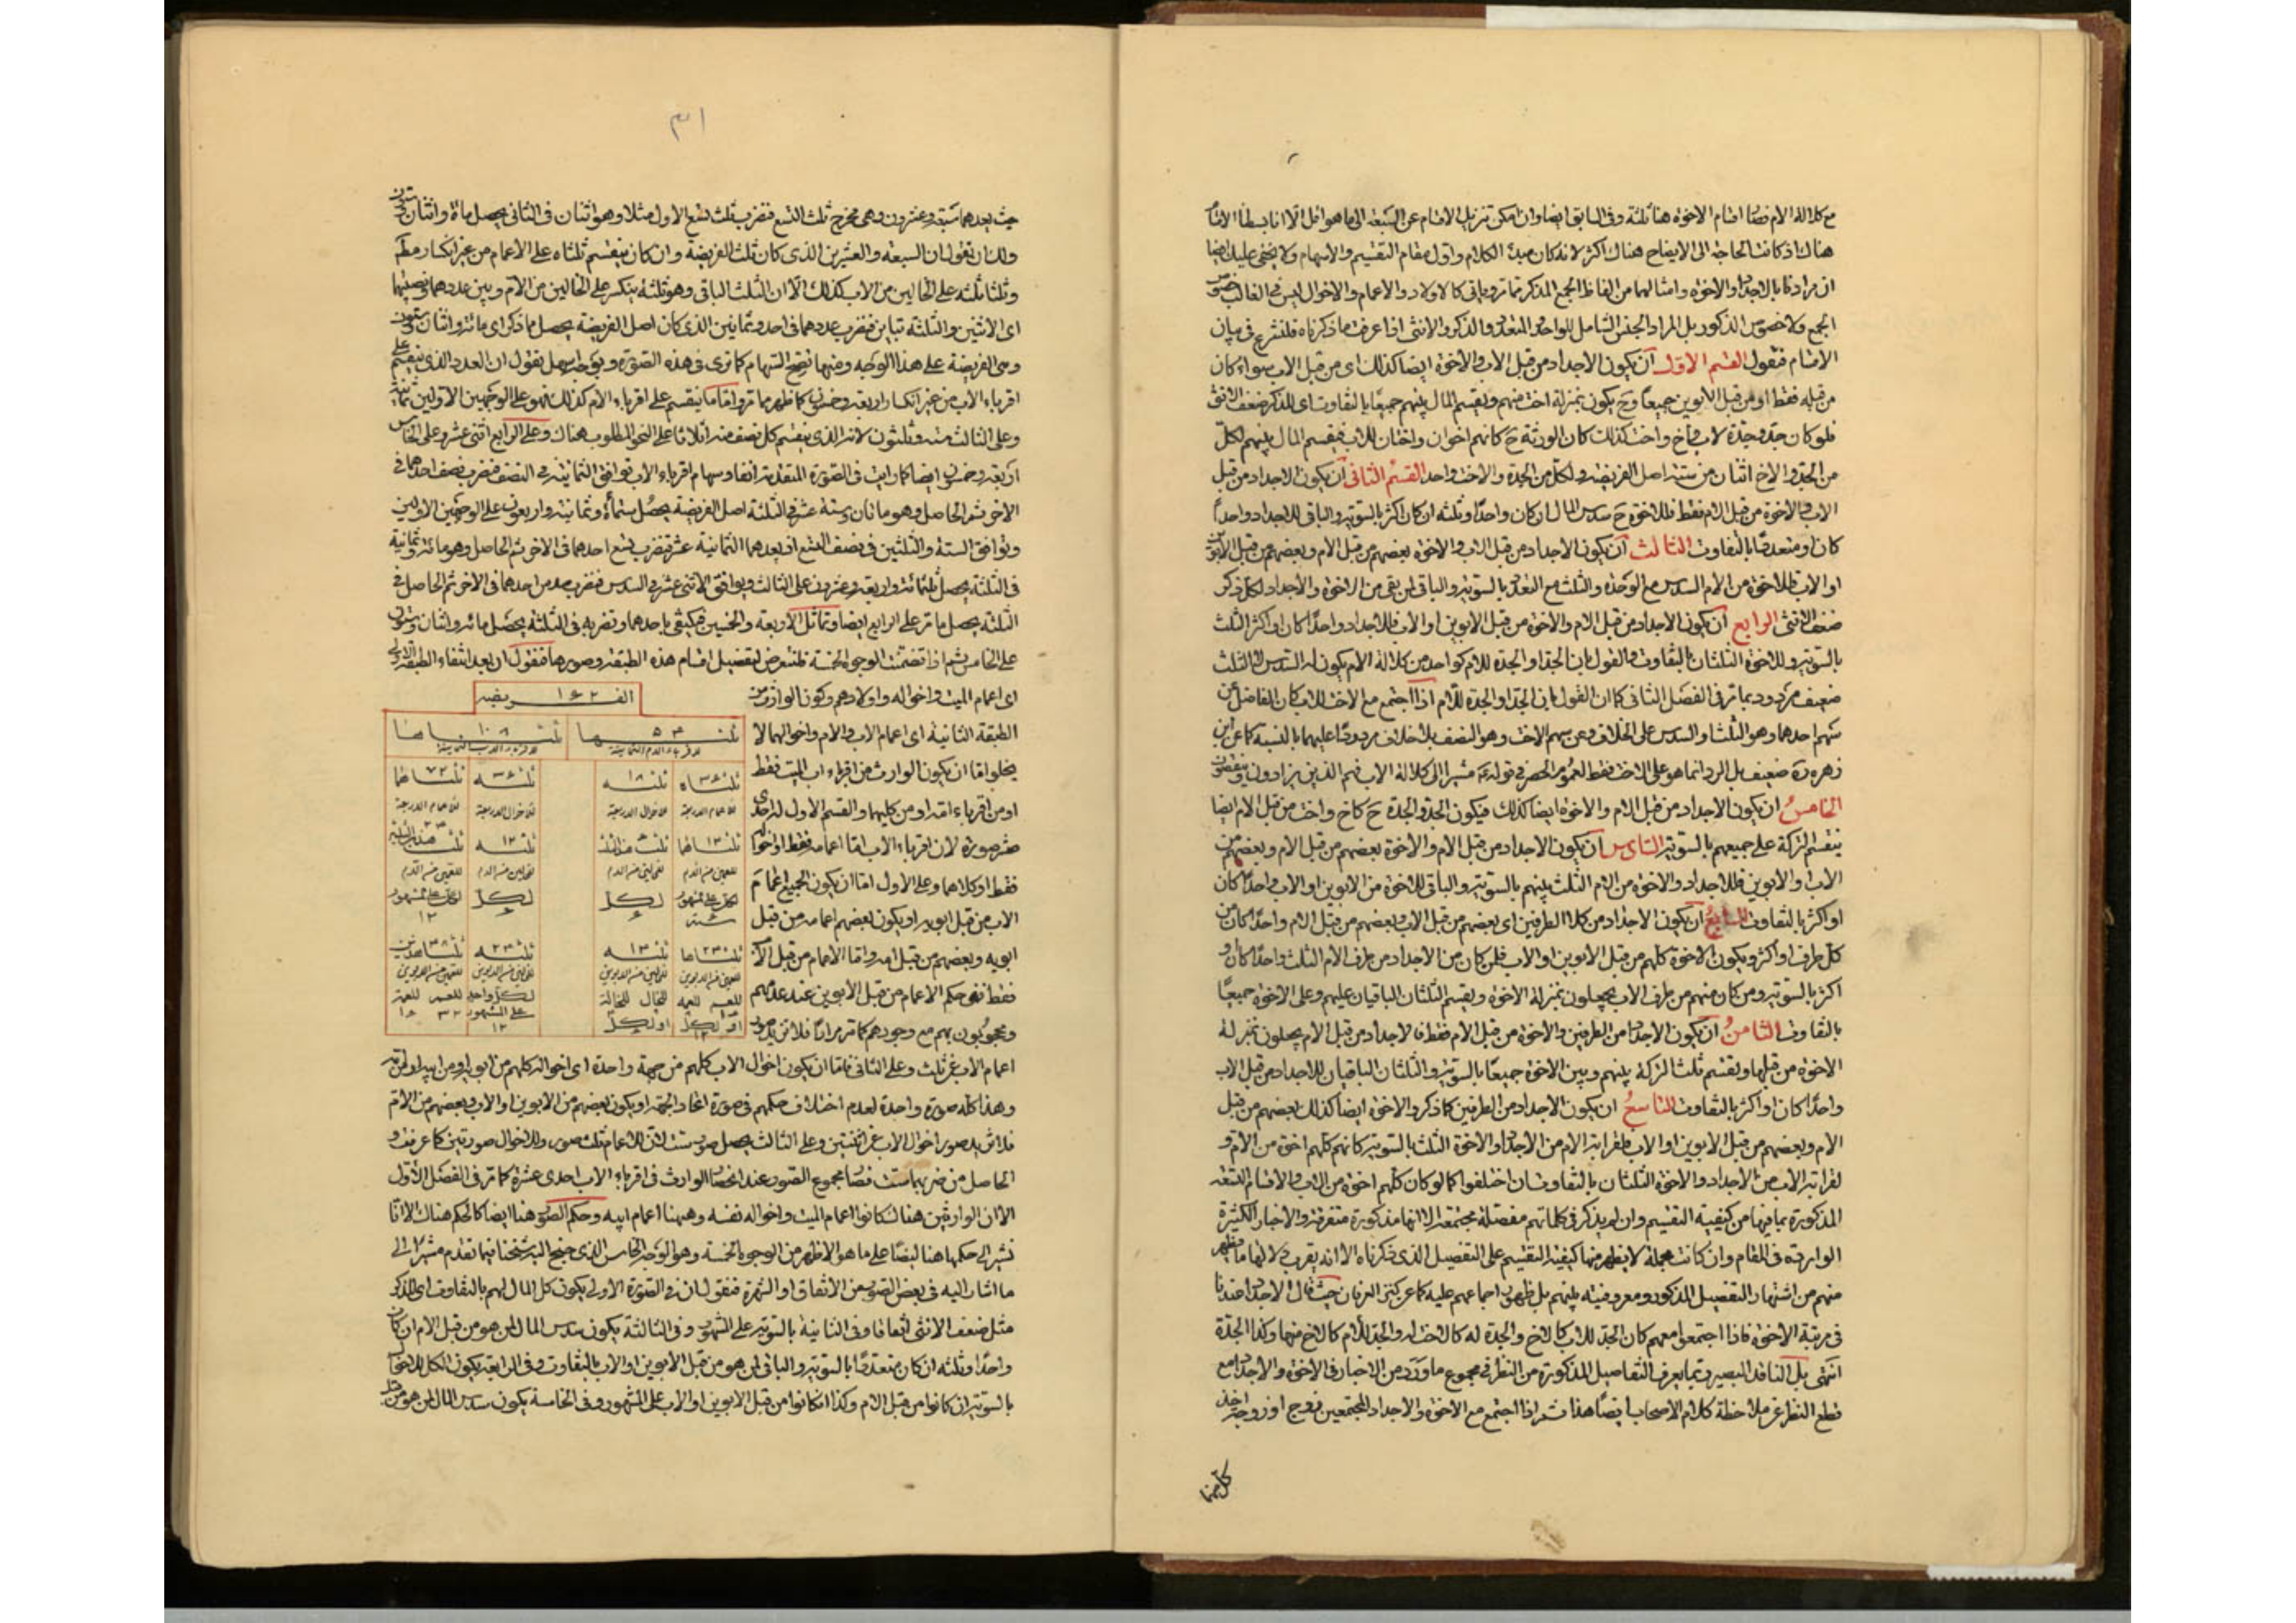 مع كلالة الام فصا اقسام الاخوة هنا ثلثة وفى السابق ايضا وان امكن تنزيل الاقسام عن السبعة الى ما هو اقل الا انا بسطنا الاقسام
هناك اذ كانت الحاجة الى الايضاح هناك اكثر لانه كان مبدء الكلام واول مقام التقسيم والاسهام ولا يخفى عليك ايضا
ان مرادنا بالاجداد والاخوة وامثالهما من الفاظ الجمع المذكر مما مر وياتى كالاولاد والاعمام والاخوال ليس فى الغالب خصوص
الجمع ولا خصوص الذكور بل المراد الجنس الشامل للواحد والمتعدد والذكر والانثى اذا عرفت ما ذكرناه فلنشرع فى بيان
الاقسام فنقول القسم الاول ان يكون الاجداد من قبل الاب والاخوة ايضا كذلك اى من قبل الاب سواء كان
من قبله فقط او من قبل الابوين جميعا وح يكون بمنزلة اخت منهم ويقسم المال بينهم جميعا بالتفاوت اى للذكر ضعف الانثى
فلو كان جد وجدة لاب واخ واخت كذلك كان الورثة ح كانهم اخوان واختان للاب فيقسم المال بينهم لكل
من الجد والاخ اثنان من ستة اصل الفريضة ولكل من الجدة والاخت واحد القسم الثانى ان يكون الاجداد من قبل
الاب والاخوة من قبل الام فقط فللاخوة ح سدس المال ان كان واحدا وثلثه ان كان اكثر بالسوية والباقى للاجداد واحدا
كان او متعددا بالتفاوت الثالث ان يكون الاجداد من قبل الاب والاخوة بعضهم من قبل الام وبعضهم من قبل الابوين
او الاب فللاخوة من الام السدس مع الوحدة والثلث مع التعدد بالسوية والباقى لمن بقى من الاخوة والاجداد لكل ذكر
ضعف الانثى الرابع ان يكون الاجداد من قبل الام والاخوة من قبل الابوين او الاب فللاجداد واحدا كان او اكثر الثلث
بالسوية وللاخوة الثلثان بالتفاوت والقول بان الجد او الجدة للام كواحد من كلالة الام يكون له السدس لا الثلث
ضعيف مردود بما مر فى الفصل الثانى كما ان القول بان الجد او الجدة للام اذا اجتمع مع الاخت للاب كان الفاضل عن
سهم احدهما وهو الثلث او السدس على الخلاف وعن سهم الاخت وهو النصف بلا خلاف مردودا عليهما بالنسبة كما عن ابن
زهرة ضعيف بل الرد انما هو على الاخت فقط لعموم الحصر فى قوله مشيرا الى كلالة الاب فهم الذين يزادون وينقصون
الخامس ان يكون الاجداد من قبل الام والاخوة ايضا كذلك فيكون الجد والجدة ح كاخ واخت من قبل الام ايضا
ينقسم التركة على جميعهم بالسوية السادس ان يكون الاجداد من قبل الام والاخوة بعضهم من قبل الام وبعضهم من
الاب او الابوين فللاجداد والاخوة من الام الثلث بينهم بالسوية والباقى للاخوة من الابوين او الاب واحدا كان
او اكثر بالتفاوت السابع ان يكون الاجداد من كلا الطرفين اى بعضهم من قبل الاب وبعضهم من قبل الام واحدا كان من
كل طرف او اكثر ويكون الاخوة كلهم من قبل الابوين او الاب فلمن كان من الاجداد من طرف الام الثلث واحدا كان او
اكثر بالسوية ومن كان منهم من طرف الاب يجعلون بمنزلة الاخوة ويقسم الثلثان الباقيان عليهم وعلى الاخوة جميعا
بالتفاوت الثامن ان يكون الاجداد من الطرفين والاخوة من قبل الام فقط فالاجداد من قبل الام يجعلون بمنزلة
الاخوة من قبلها ويقسم ثلث التركة بينهم وبين الاخوة جميعا بالسوية والثلثان الباقيان للاجداد من قبل الاب
واحدا كان او اكثر بالتفاوت التاسع ان يكون الاجداد من الطرفين كما ذكر والاخوة ايضا كذلك بعضهم من قبل
الام وبعضهم من قبل الابوين او الاب فلقرابة الام من الاجداد والاخوة الثلث بالسوية كانهم كلهم اخوة من الام و
لقرابة الاب من الاجداد والاخوة الثلثان بالتفاوت ان اختلفوا كما لو كان كلهم اخوة من الاب والاقسام التسعة
المذكورة بما فيها من كيفية التقسيم وان لم يذكر فى كلماتهم مفصلة مجتمعة الا انها مذكورة متفرقة والاخبار الكثيرة
الواردة فى المقام وان كانت مجملة لا يظهر منها كيفية التقسيم على التفصيل الذى ذكرناه الا انه يقرب دلالتها ما يظهر
منهم من اشتهار التفصيل المذكور ومعروفيته بينهم بل ظهور اجماعهم عليه كما عن كنز العرفان حيث قال الاجداد عندنا
فى مرتبة الاخوة فاذا اجتمعوا معهم كان الجد للاب كالاخ والجدة له كالاخت له والجد للام كالاخ منها وكذا الجدة
انتهى بل الناقد البصير ربما يعرف التفاصيل المذكورة من النظر فى مجموع ما ورد من الاخبار فى الاخوة والاجداد مع
قطع النظر عن ملاحظة كلام الاصحاب ايضا هذا ثم اذا اجتمع مع الاخوة والاجداد المجتمعين زوج او زوجة اخذ
كل منهما
٣١
حيث يعدهما سبعة وعشرون وهى مخرج ثلث التسع فنضرب ثلث تسع الاول مثلا وهو اثنان فى الثانى يحصل مائة واثنان وستون
ولك ان تقول ان السبعة والعشرين الذى كان ثلث الفريضة وان كان ينقسم ثلثاه على الاعمام من غير انكسار
وثلثا ثلثه على الخالين من الاب كذلك الا ان الثلث الباقى وهو ثلثة ينكسر على الخالين من الام وبين عددهما ونصيبهما
اى الاثنين والثلثة تباين فنضرب عددهما فى احد وثمانين الذى كان اصل الفريضة يحصل ما ذكر اى مائة واثنان وستون
وهى الفريضة على هذا الوجه ومنها تصح السهام كما ترى فى هذه الصورة وبوجه اسهل نقول ان العدد الذى ينقسم على
اقرباء الاب من غير انكسار اربعة وخمسون كما ظهر مما مر واما ما ينقسم على اقرباء الام كذلك فهو على الوجهين الاولين ثمانية
وعلى الثالث ستة وثلثون لانه الذى ينقسم كل نصف منه اثلاثا على النحو المطلوب هناك وعلى الرابع اثنى عشر وعلى الخامس
اربعة وخمسون ايضا كما رايت فى الصورة المتقدمة آنفا وسهام اقرباء الاب توافق الثمانية فى النصف فنضرب نصف احدهما فى
الاخر ثم الحاصل وهو مائتان وستة عشر فى الثلثة اصل الفريضة يحصل ستمائة وثمانية واربعون على الوجهين الاولين
وتوافق الستة والثلثين فى نصف التسع اذ يعدهما الثمانية عشر فنضرب تسع احدهما فى الاخر ثم الحاصل وهو مائة وثمانية
فى الثلثة يحصل ثلثمائة واربعة وعشرون على الثالث ويوافق الاثنى عشر فى السدس فنضرب سدس احدهما فى الاخر ثم الحاصل فى
الثلثة يحصل ما مر على الرابع ايضا وتماثل الاربعة والخمسين فيكتفى باحدهما ونضربه فى الثلثة يحصل مائة واثنان وستون
على الخامس ثم اذا تضمنت الوجوه الخمسة فلنتعرض لتفصيل اقسام هذه الطبقة وصورها فنقول ان بعد انتفاء الطبقة الاولى
اى اعمام الميت واخواله واولادهم وكون الوارث من
الطبقة الثانية اى اعمام الاب والام واخوالهما لا
يخلو اما ان يكون الوارث من اقرباء اب الميت فقط
او من اقرباء امه او من كليهما والقسم الاول له احدى
عشر صورة لان اقرباء الاب اما اعمامه فقط او اخواله
فقط او كلاهما وعلى الاول اما ان يكون الجميع اعمام
الاب من قبل ابويه او يكون بعضهم اعمامه من قبل
ابويه وبعضهم من قبل امه واما الاعمام من قبل الاب
فقط ففى حكم الاعمام من قبل الابوين عند عدمهم
ومحجوبون بهم مع وجودهم كما مر مرارا فلا تزيد صور
الفريضة ١٦٢
ثلثها ٥٤
لاقرباء الام الثمانية
ثلثاها ١٠٨
لاقرباء الاب الثمانية
ثلثاه ٣٦
للاعمام الاربعة
ثلثه ١٨
للاخوال الاربعة
ثلثه ٣٦
للاخوال الاربعة
ثلثاها ٧٢
للاعمام الاربعة
اعمام الاب عن ثلث وعلى الثانى فاما ان يكون اخوال الاب كلهم من جهة واحدة اى اخواله كلهم من ابويه او من ابيه او من امه
وهذا كله صورة واحدة لعدم اختلاف حكمهم فى صورة اتحاد الجهة او يكون بعضهم من الابوين او الاب وبعضهم من الام
فلا تزيد صور اخوال الاب عن اثنتين وعلى الثالث يحصل صور ست لان للاعمام ثلث صور وللاخوال صورتين كما عرفت و
الحاصل من ضربهما ست فصا مجموع الصور عند انحصار الوارث فى اقرباء الاب احدى عشرة كما مر فى الفصل الاول
الا ان الوارثين هناك كانوا اعمام الميت واخواله نفسه وههنا اعمام ابيه وحكم الصور هنا ايضا كالحكم هناك الا انا
نشير الى حكمها هنا ايضا على ما هو الاظهر من الوجوه الخمسة وهو الوجه الخامس الذى جنح اليه شيخنا فيما تقدم مشيرا الى
ما اشار اليه فى بعض الصور من الاتفاق او الشهرة فنقول ان فى الصورة الاولى يكون كل المال لهم بالتفاوت اى للذكر
مثل ضعف الانثى اتفاقا وفى الثانية بالسوية على المشهور وفى الثالثة يكون سدس المال لمن هو من قبل الام ان كان
واحدا وثلثه ان كان متعددا بالسوية والباقى لمن هو من قبل الابوين او الاب بالتفاوت وفى الرابعة يكون الكل للاخوال
بالسوية ان كانوا من قبل الام وكذا ان كانوا من قبل الابوين او الاب على المشهور وفى الخامسة يكون سدس المال لمن هو من قبل